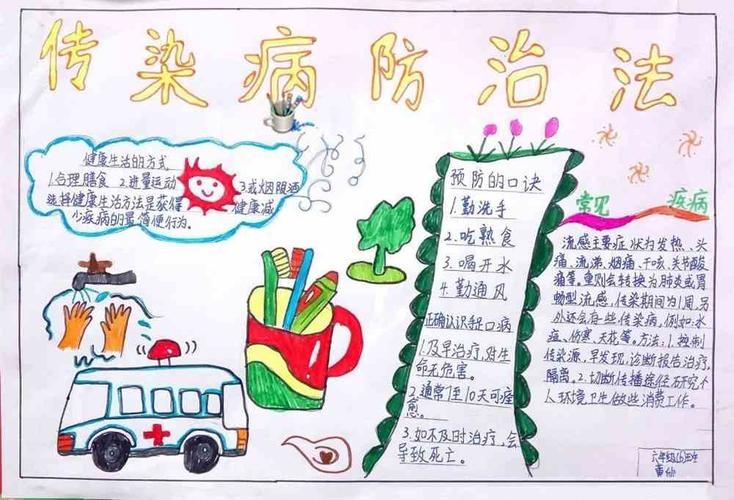 传染病防治法
健康生活的方式
1.合理膳食 2.进量运动 3.戒烟限酒
选择健康生活方法是获得健康减
少疾病的最简便行为。
预防的口诀
1.勤洗手
2.吃熟食
3.喝开水
4.勤通风
正确认识手足口病
1.及早治疗,对生
命无危害。
2.通常7至10天可痊
愈。
3.如不及时治疗,会
导致死亡。
常见 疾病
流感主要症状为发热、头
痛、流涕、咽痛、干咳、关节酸
痛等,重则会转换为肺炎或胃
肠型流感,传染期间为1周,另
外还会有些传染病,例如:水
痘、伤寒、天花等。方法:1.控制
传染源,早发现,诊断报告治疗,
隔离。2.切断传播途径
人环境卫生做些消费工作。
六年级(6)班
黄